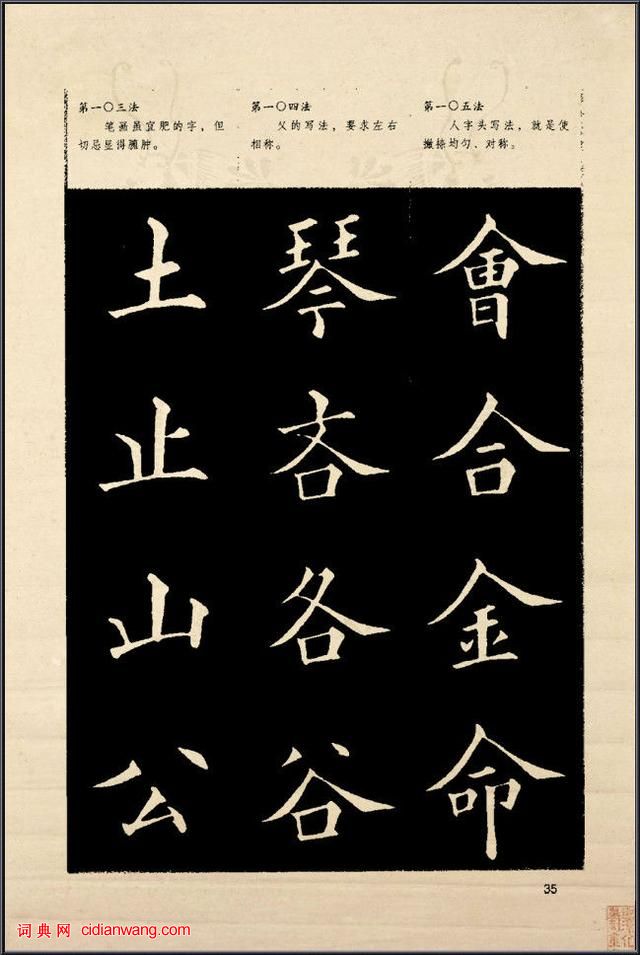 第一〇三法
笔画虽宜肥的字，但
切忌显得臃肿。
第一〇四法
父的写法，要求左右
相称。
第一〇五法
人字头写法，就是使
撇捺均匀、对称。
會合金命
琴吝各谷
土止山公
35
词典网 cidianwang.com